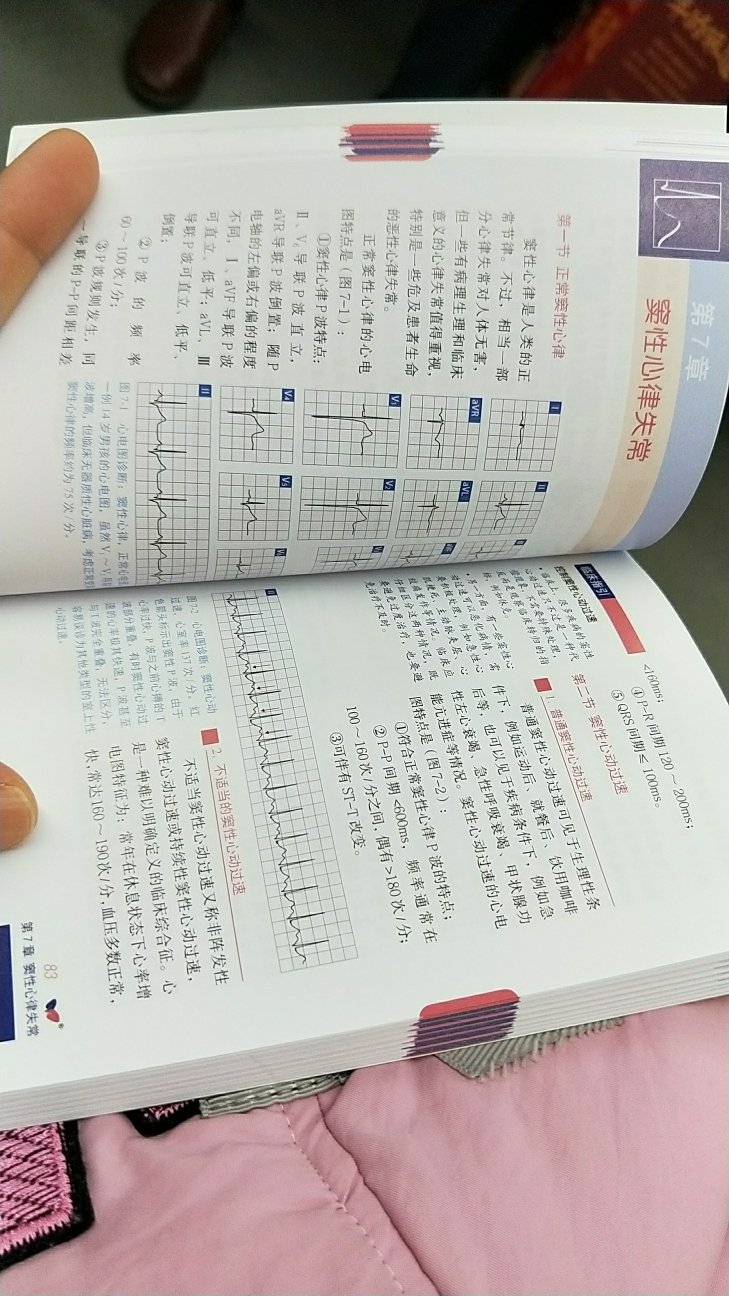 第7章
窦性心律失常
第一节 正常窦性心律
窦性心律是人类的正
常节律。不过，相当一部
分心律失常对人体无害，
但一些有病理生理和临床
意义的心律失常值得重视，
特别是一些危及患者生命
的恶性心律失常。
正常窦性心律的心电
图特点是（图7-1）：
①窦性心律P波特点：
Ⅱ、V₆导联P波直立，
aVR导联P波倒置；随P
电轴的左偏或右偏的程度
不同，Ⅰ、aVF导联P波
可直立、低平；aVL、Ⅲ
导联P波可直立、低平、
倒置；
②P波的频率
60～100次/分；
③P波规则发生，同
一导联的P-P间距相差
Ⅰ
Ⅱ
aVR
aVL
V₁
V₂
V₄
V₅
Ⅱ
图7-1 心电图诊断：窦性心律，正常心电
一例14岁男孩的心电图，虽然V₁～V
波增高，但临床无器质性心脏病，考虑正常
窦性心律的频率约为75次/分。
<160ms；
④P-R间期120～200ms；
⑤QRS间期≤100ms。
第二节 窦性心动过速
1. 普通窦性心动过速
普通窦性心动过速可见于生理性条
件下，例如运动后、就餐后、饮用咖啡
后等，也可以见于疾病条件下，例如急
性左心衰竭、急性呼吸衰竭、甲状腺功
能亢进症等情况。窦性心动过速的心电
图特点是（图7-2）：
①符合正常窦性心律P波的特点；
②P-P间期<600ms，频率通常在
100～160次/分之间，偶有>180次/分；
③可伴有ST-T改变。
临床指引
控制窦性心动过速
Ⅱ
图7-2 心电图诊断：窦性心动
过速。心室率137次/分。红
色箭头标示出窦性P波，由于
心率过快，P波与之前心搏的T
波部分重叠，有时窦性心动过
速的心率极其快速，P波甚至
与T波完全重叠，无法区分，
容易误诊为其他类型的室上性
心动过速。
2. 不适当的窦性心动过速
不适当窦性心动过速又称非阵发性
窦性心动过速或持续性窦性心动过速，
是一种难以明确定义的临床综合征。心
电图特征为：常年在休息状态下心率增
快，常达160～190次/分，血压多数正常，
83
第7章 窦性心律失常